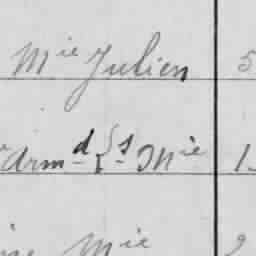 Mie Julien 5
Armd Ss Mie 1
Mie 2